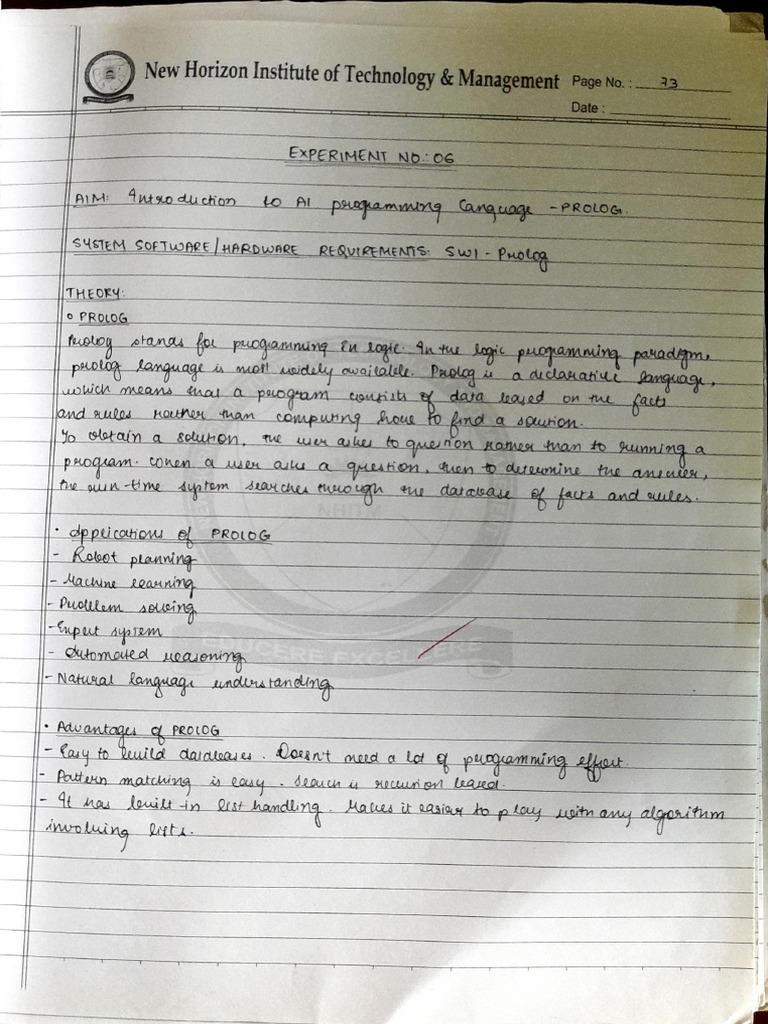 New Horizon Institute of Technology & Management Page No. : 73
Date :
EXPERIMENT NO.: 06
AIM: Introduction to AI programming Language - PROLOG.
SYSTEM SOFTWARE/HARDWARE REQUIREMENTS: SWI - Prolog
THEORY:
o PROLOG
Prolog stands for programming in logic. In the logic programming paradigm,
prolog language is most widely available. Prolog is a declarative language,
which means that a program consists of data based on the facts
and rules rather than computing how to find a solution.
To obtain a solution, the user asks to question rather than to running a
program. When a user asks a question, then to determine the answer,
the run-time system searches through the database of facts and rules.
• Applications of PROLOG
- Robot planning
- Machine learning
- Problem solving
- Expert system
- Automated reasoning
- Natural language understanding
• Advantages of PROLOG
- Easy to build databases. Doesn't need a lot of programming effort.
- Pattern matching is easy. Search is recursion based.
- It has built in list handling. Makes it easier to play with any algorithm
involving lists.
NHITM